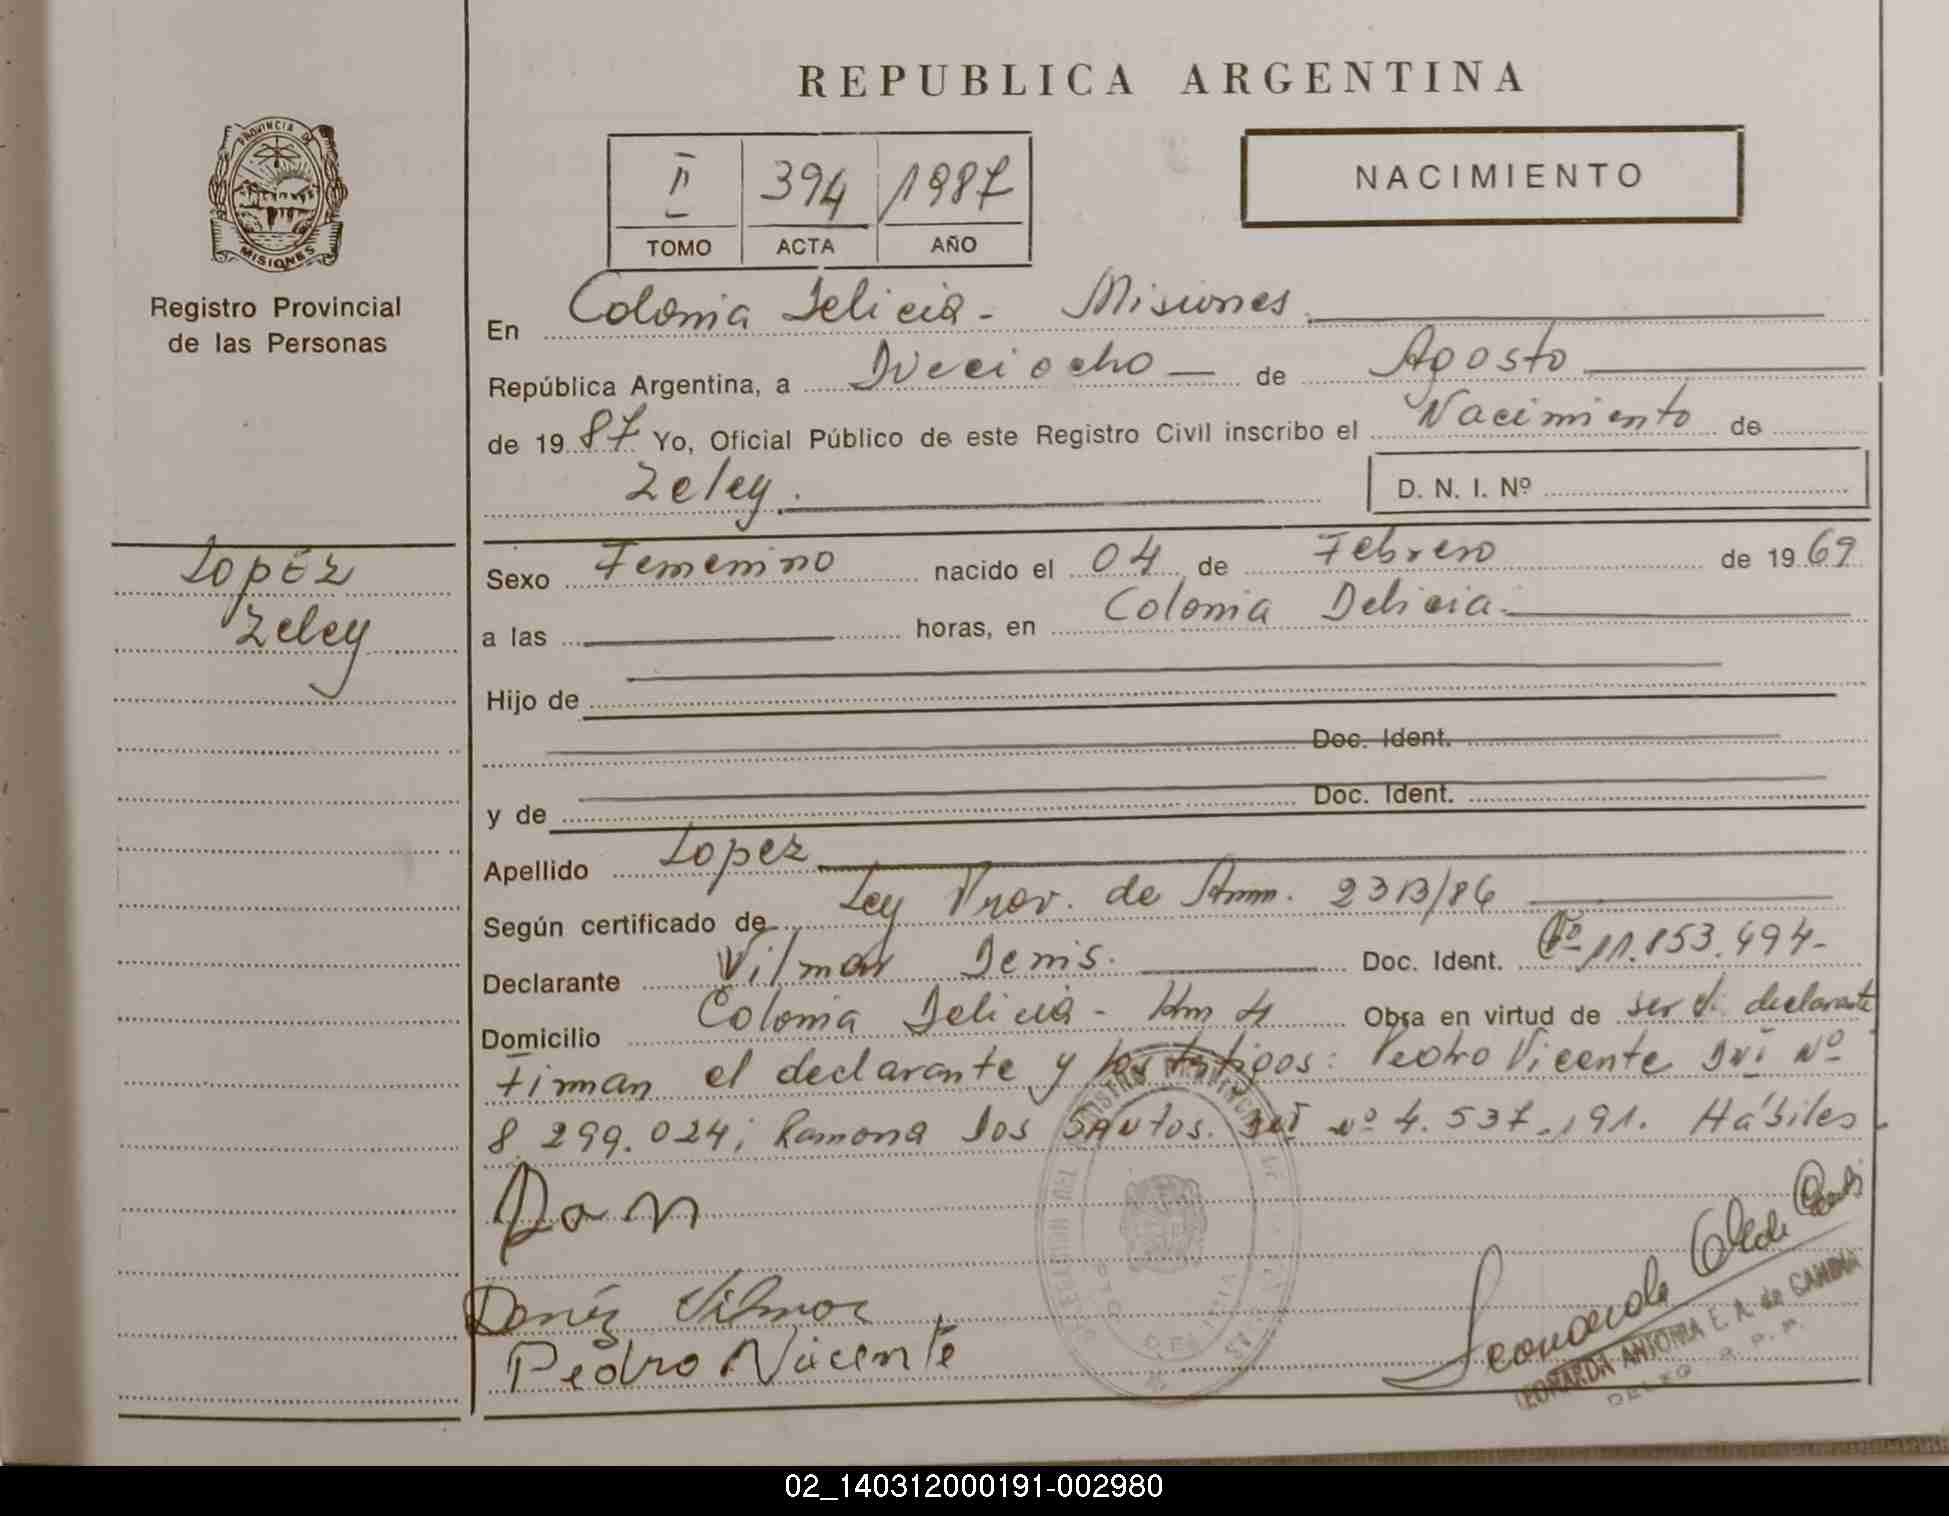 REPUBLICA ARGENTINA
PROVINCIA DE
MISIONES
Registro Provincial
de las Personas
II 394 1987
TOMO ACTA AÑO
NACIMIENTO
En Colonia Delicia - Misiones
República Argentina, a Dieciocho de Agosto
de 1987 Yo, Oficial Público de este Registro Civil inscribo el Nacimiento de
Zeley. D. N. I. Nº
Lopéz
Zeley
Sexo Femenino nacido el 04 de Febrero de 1969
a las horas, en Colonia Delicia.
Hijo de
Doc. Ident.
y de Doc. Ident.
Apellido Lopez
Según certificado de Ley Prov. de Amn. 2313/86
Declarante Vilmar Denis. Doc. Ident. 11.853.494-
Domicilio Colonia Delicia - Km 4 Obra en virtud de ser el declarante
Firman el declarante y los testigos: Pedro Vicente DNI Nº
8.299.024; Ramona Dos Santos. DNI Nº 4.537.191. Hábiles.
Ram
Deniz Vilmar
Pedro Vicente
LEONARDA ANTONIA E. A. de CANDIA
02_140312000191-002980